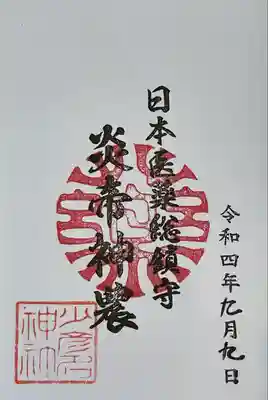 令和四年九月九日
日本医薬総鎮守
炎帝神農
少彦名
神社